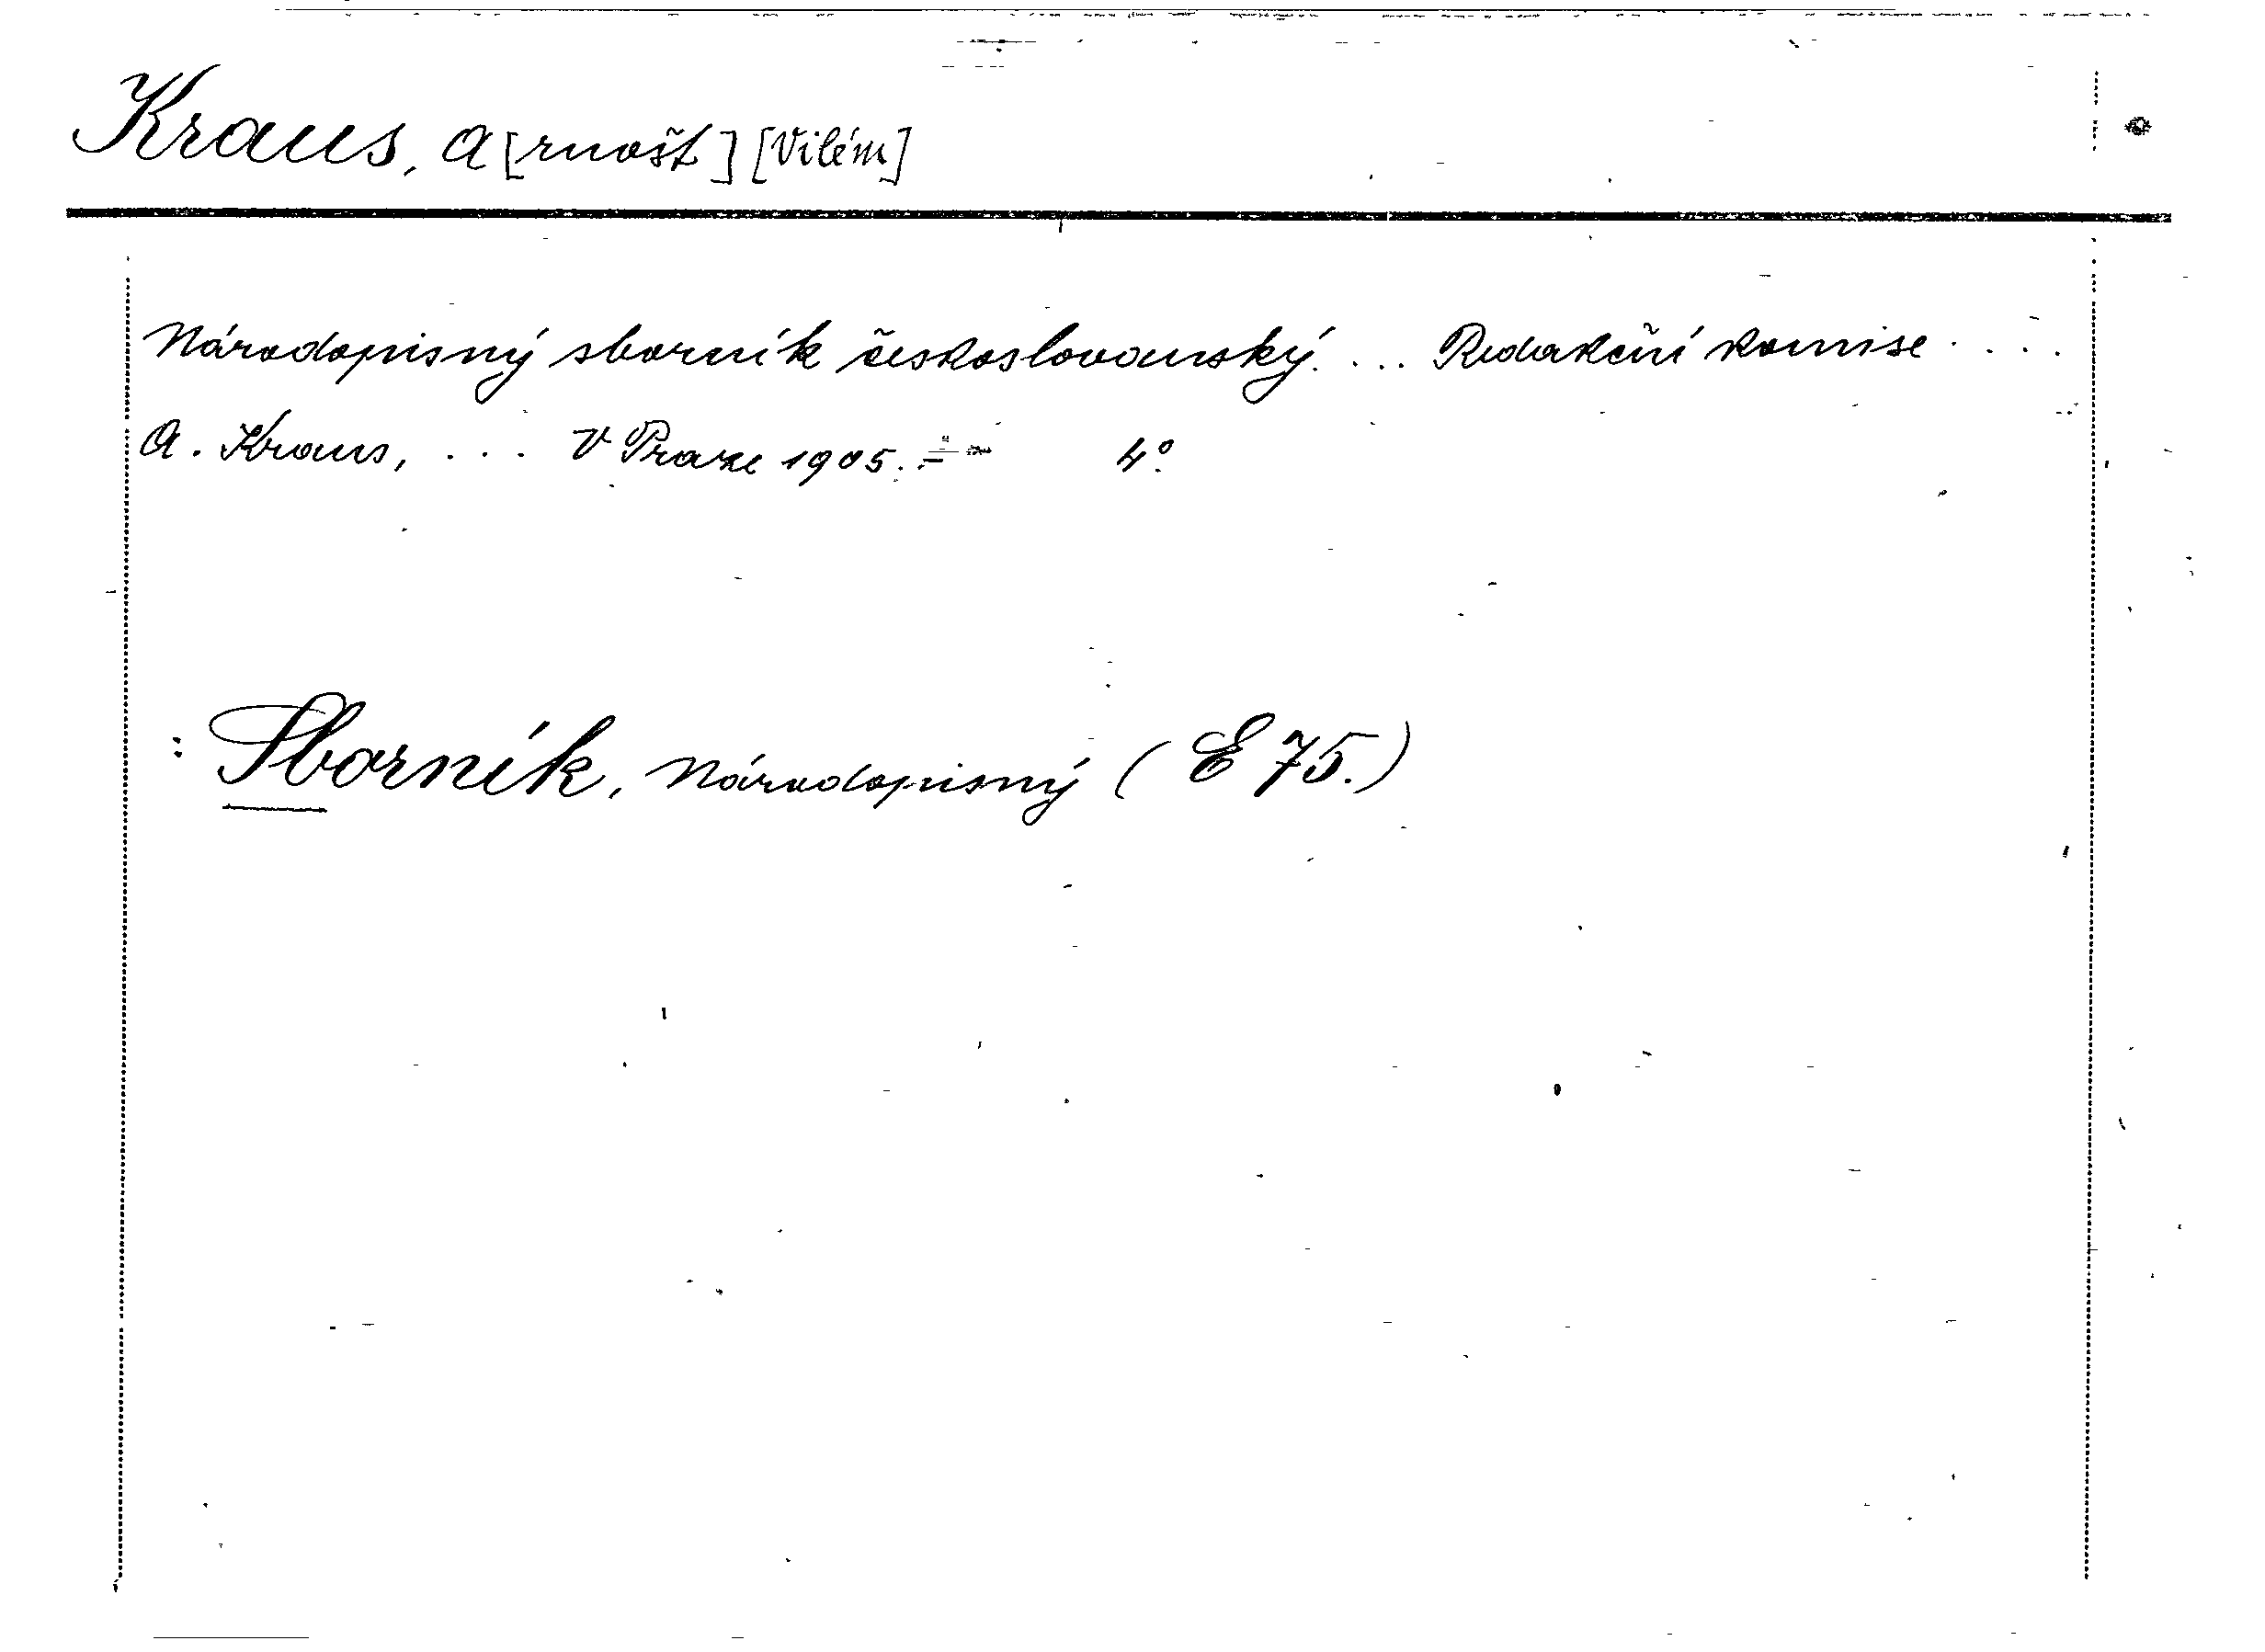 Kraus, A[rnošt] [Vilém]
Národopisný sborník českoslovanský. ... Redakční komise ....
A. Kraus, ... V Praze 1905. - 4°.
: Sborník, Národopisný (E 75.)